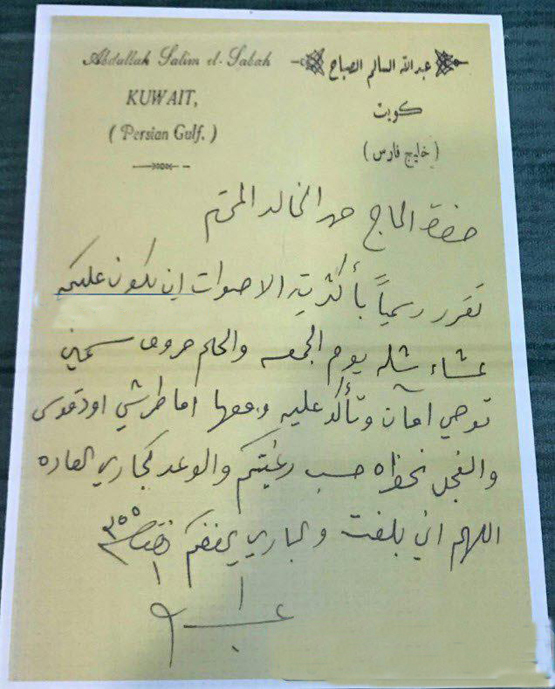 Abdullah Salim el-Sabah
KUWAIT,
(Persian Gulf.)
عبدالله السالم الصباح
كويت
(خليج فارس)
حضرة الحاج حمد الخالد المحترم
تقرر رسمياً بأكثرية الاصوات ان يكون عليكم
عشاء شله يوم الجمعه والحلم خروف سمين
توحي آمان وتأكد عليه ومعها اما طرشي او دقوس
والفجل نحضره حسب رغبتكم والوعد كجاري العاده
اللهم اني بلغت والباري يحفظكم